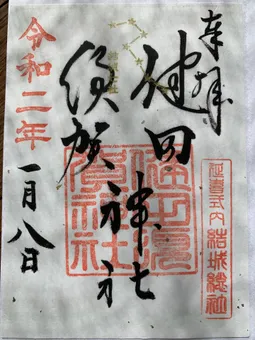 奉拝
延喜式内 結城総社
健田
須賀 神社
健田須賀神社
令和二年
一月八日